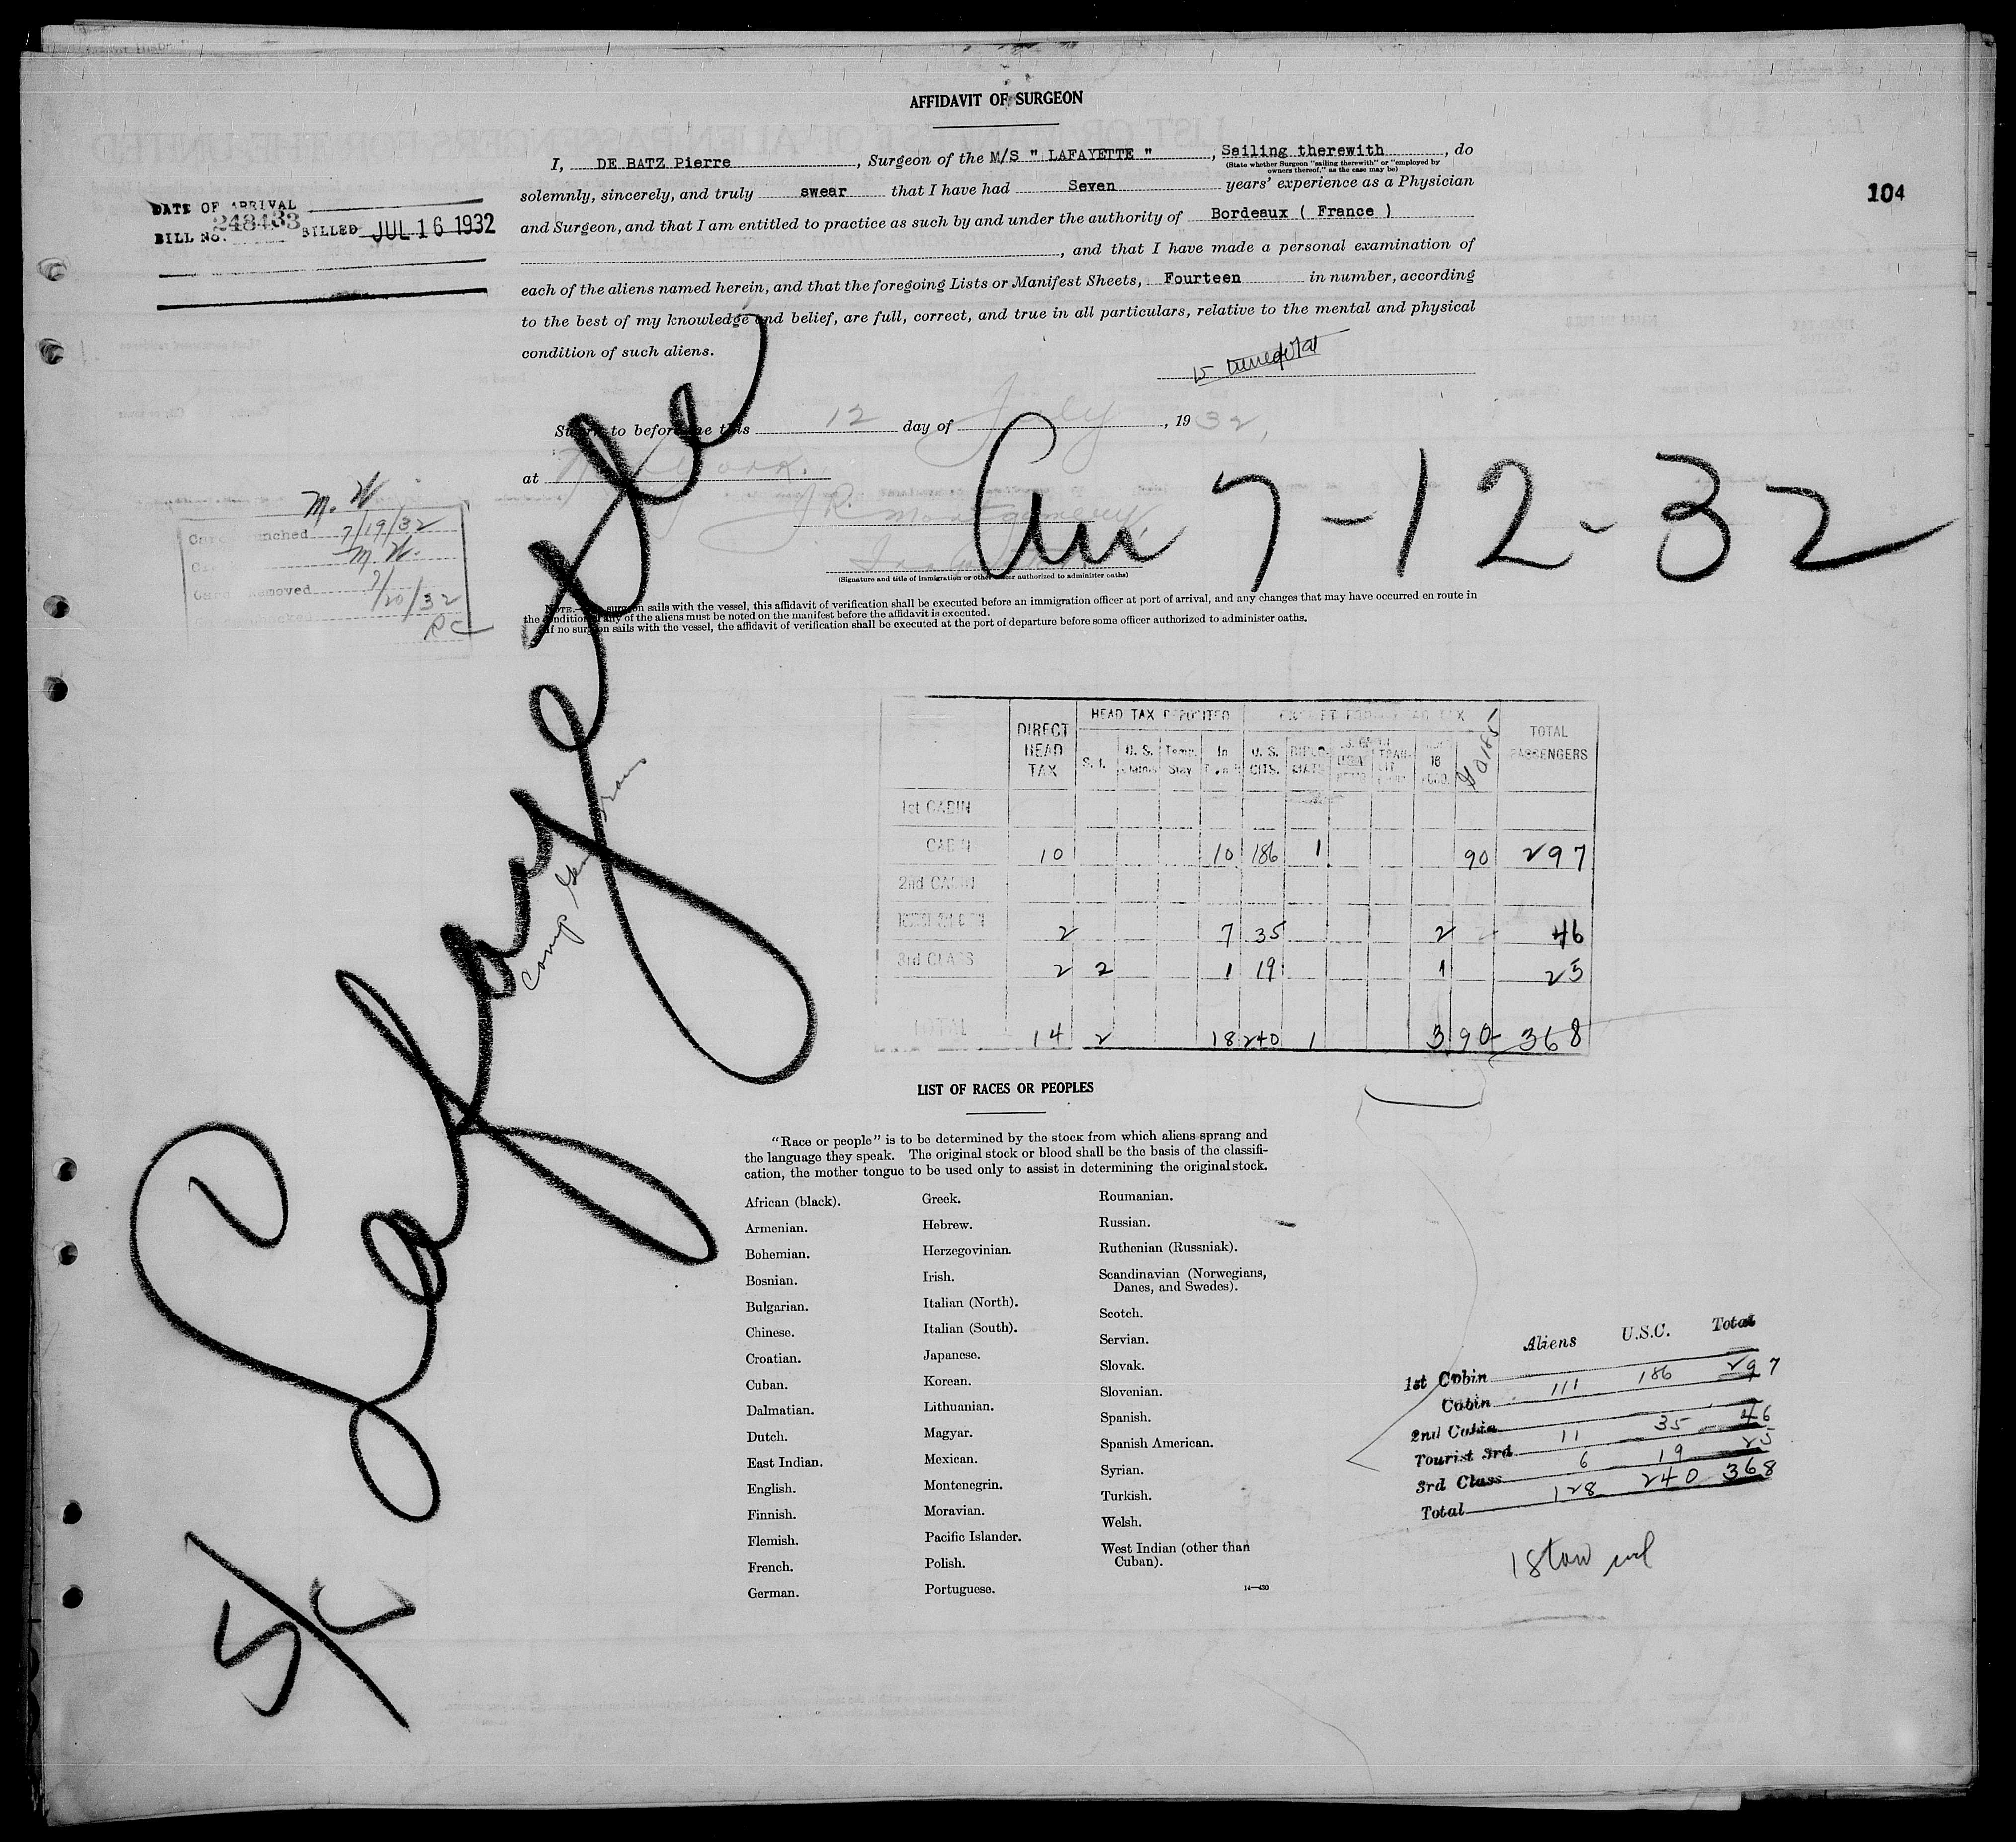 AFFIDAVIT OF SURGEON
I, DE BATZ Pierre, Surgeon of the M/S " LAFAYETTE ", Sailing therewith, do
(State whether Surgeon "sailing therewith" or "employed by
owners thereof," as the case may be)
solemnly, sincerely, and truly swear that I have had Seven years' experience as a Physician
and Surgeon, and that I am entitled to practice as such by and under the authority of Bordeaux ( France )
, and that I have made a personal examination of
each of the aliens named herein, and that the foregoing Lists or Manifest Sheets, Fourteen in number, according
to the best of my knowledge and belief, are full, correct, and true in all particulars, relative to the mental and physical
condition of such aliens.
104
DATE OF ARRIVAL
BILL NO. 248433 BILLED JUL 16 1932
Sworn to before me this 12 day of July, 1932,
at New York.
J.R. Montgomery
(Signature and title of immigration or other officer authorized to administer oaths)
Arr 7-12-32
M. W
Card Punched 7/19/32
M. W.
Card Removed 7/20/32
RC
NOTE.—If a surgeon sails with the vessel, this affidavit of verification shall be executed before an immigration officer at port of arrival, and any changes that may have occurred en route in
the condition of any of the aliens must be noted on the manifest before the affidavit is executed.
If no surgeon sails with the vessel, the affidavit of verification shall be executed at the port of departure before some officer authorized to administer oaths.
Lafayette
S/C
DIRECT HEAD TAX
HEAD TAX DEPOSITED
S. I.
U. S.
Temp. Stay
In
U. S. CITS.
TOTAL PASSENGERS
1st CABIN
CABIN 10 10 186 1 90 297
2nd CABIN
2 7 35 2 46
3rd CLASS 2 2 1 19 1 25
TOTAL 14 2 18 240 1 3 90 368
LIST OF RACES OR PEOPLES
"Race or people" is to be determined by the stock from which aliens sprang and
the language they speak. The original stock or blood shall be the basis of the classifi-
cation, the mother tongue to be used only to assist in determining the original stock.
African (black).
Armenian.
Bohemian.
Bosnian.
Bulgarian.
Chinese.
Croatian.
Cuban.
Dalmatian.
Dutch.
East Indian.
English.
Finnish.
Flemish.
French.
German.
Greek.
Hebrew.
Herzegovinian.
Irish.
Italian (North).
Italian (South).
Japanese.
Korean.
Lithuanian.
Magyar.
Mexican.
Montenegrin.
Moravian.
Pacific Islander.
Polish.
Portuguese.
Roumanian.
Russian.
Ruthenian (Russniak).
Scandinavian (Norwegians,
Danes, and Swedes).
Scotch.
Servian.
Slovak.
Slovenian.
Spanish.
Spanish American.
Syrian.
Turkish.
Welsh.
West Indian (other than
Cuban).
14—430
Aliens U.S.C. Total
1st Cabin
Cabin 111 186 297
2nd Cabin
Tourist 3rd 11 35 46
3rd Class 6 19 25
Total 128 240 368